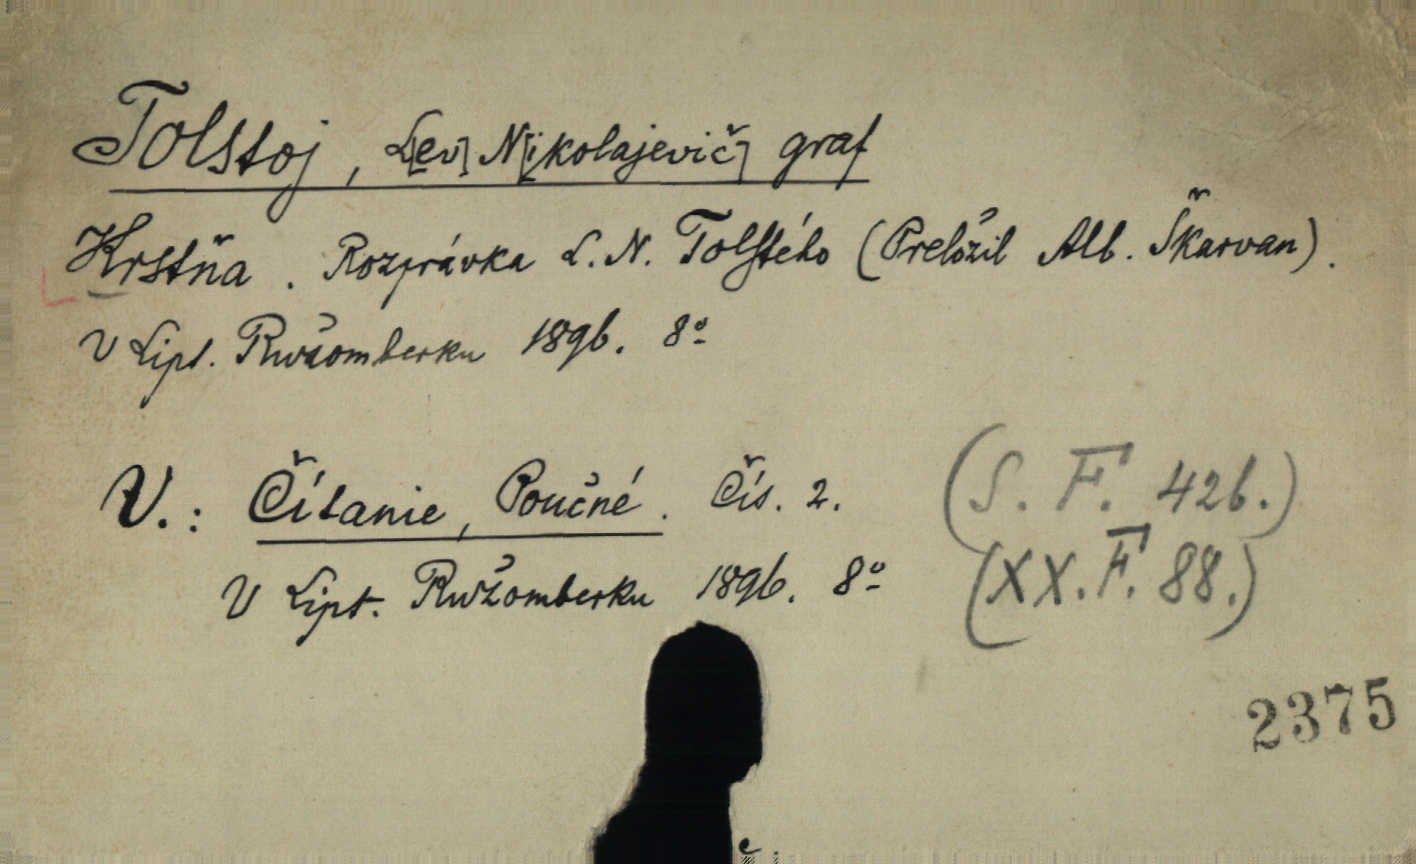 Tolstoj, L[ev] N[ikolajevič] graf
Krstňa. Rozprávka L. N. Tolstého (Preložil Alb. Škarvan).
V Lipt. Ružomberku 1896. 8°
V.: Čítanie, Poučné. Čís. 2. (S. F. 426.)
V Lipt. Ružomberku 1896. 8° (XX. F. 88.)
2375